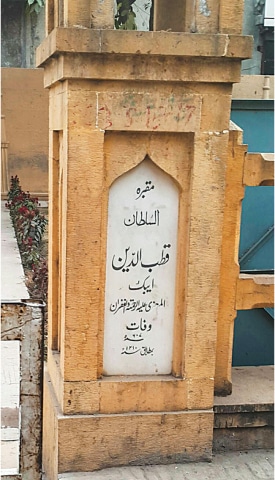 مقبرہ
السلطان
قطب الدین
ایبک
المعزی علیہ الرحمۃ والغفران
وفات
بمطابق سنہ ۱۲۱۰